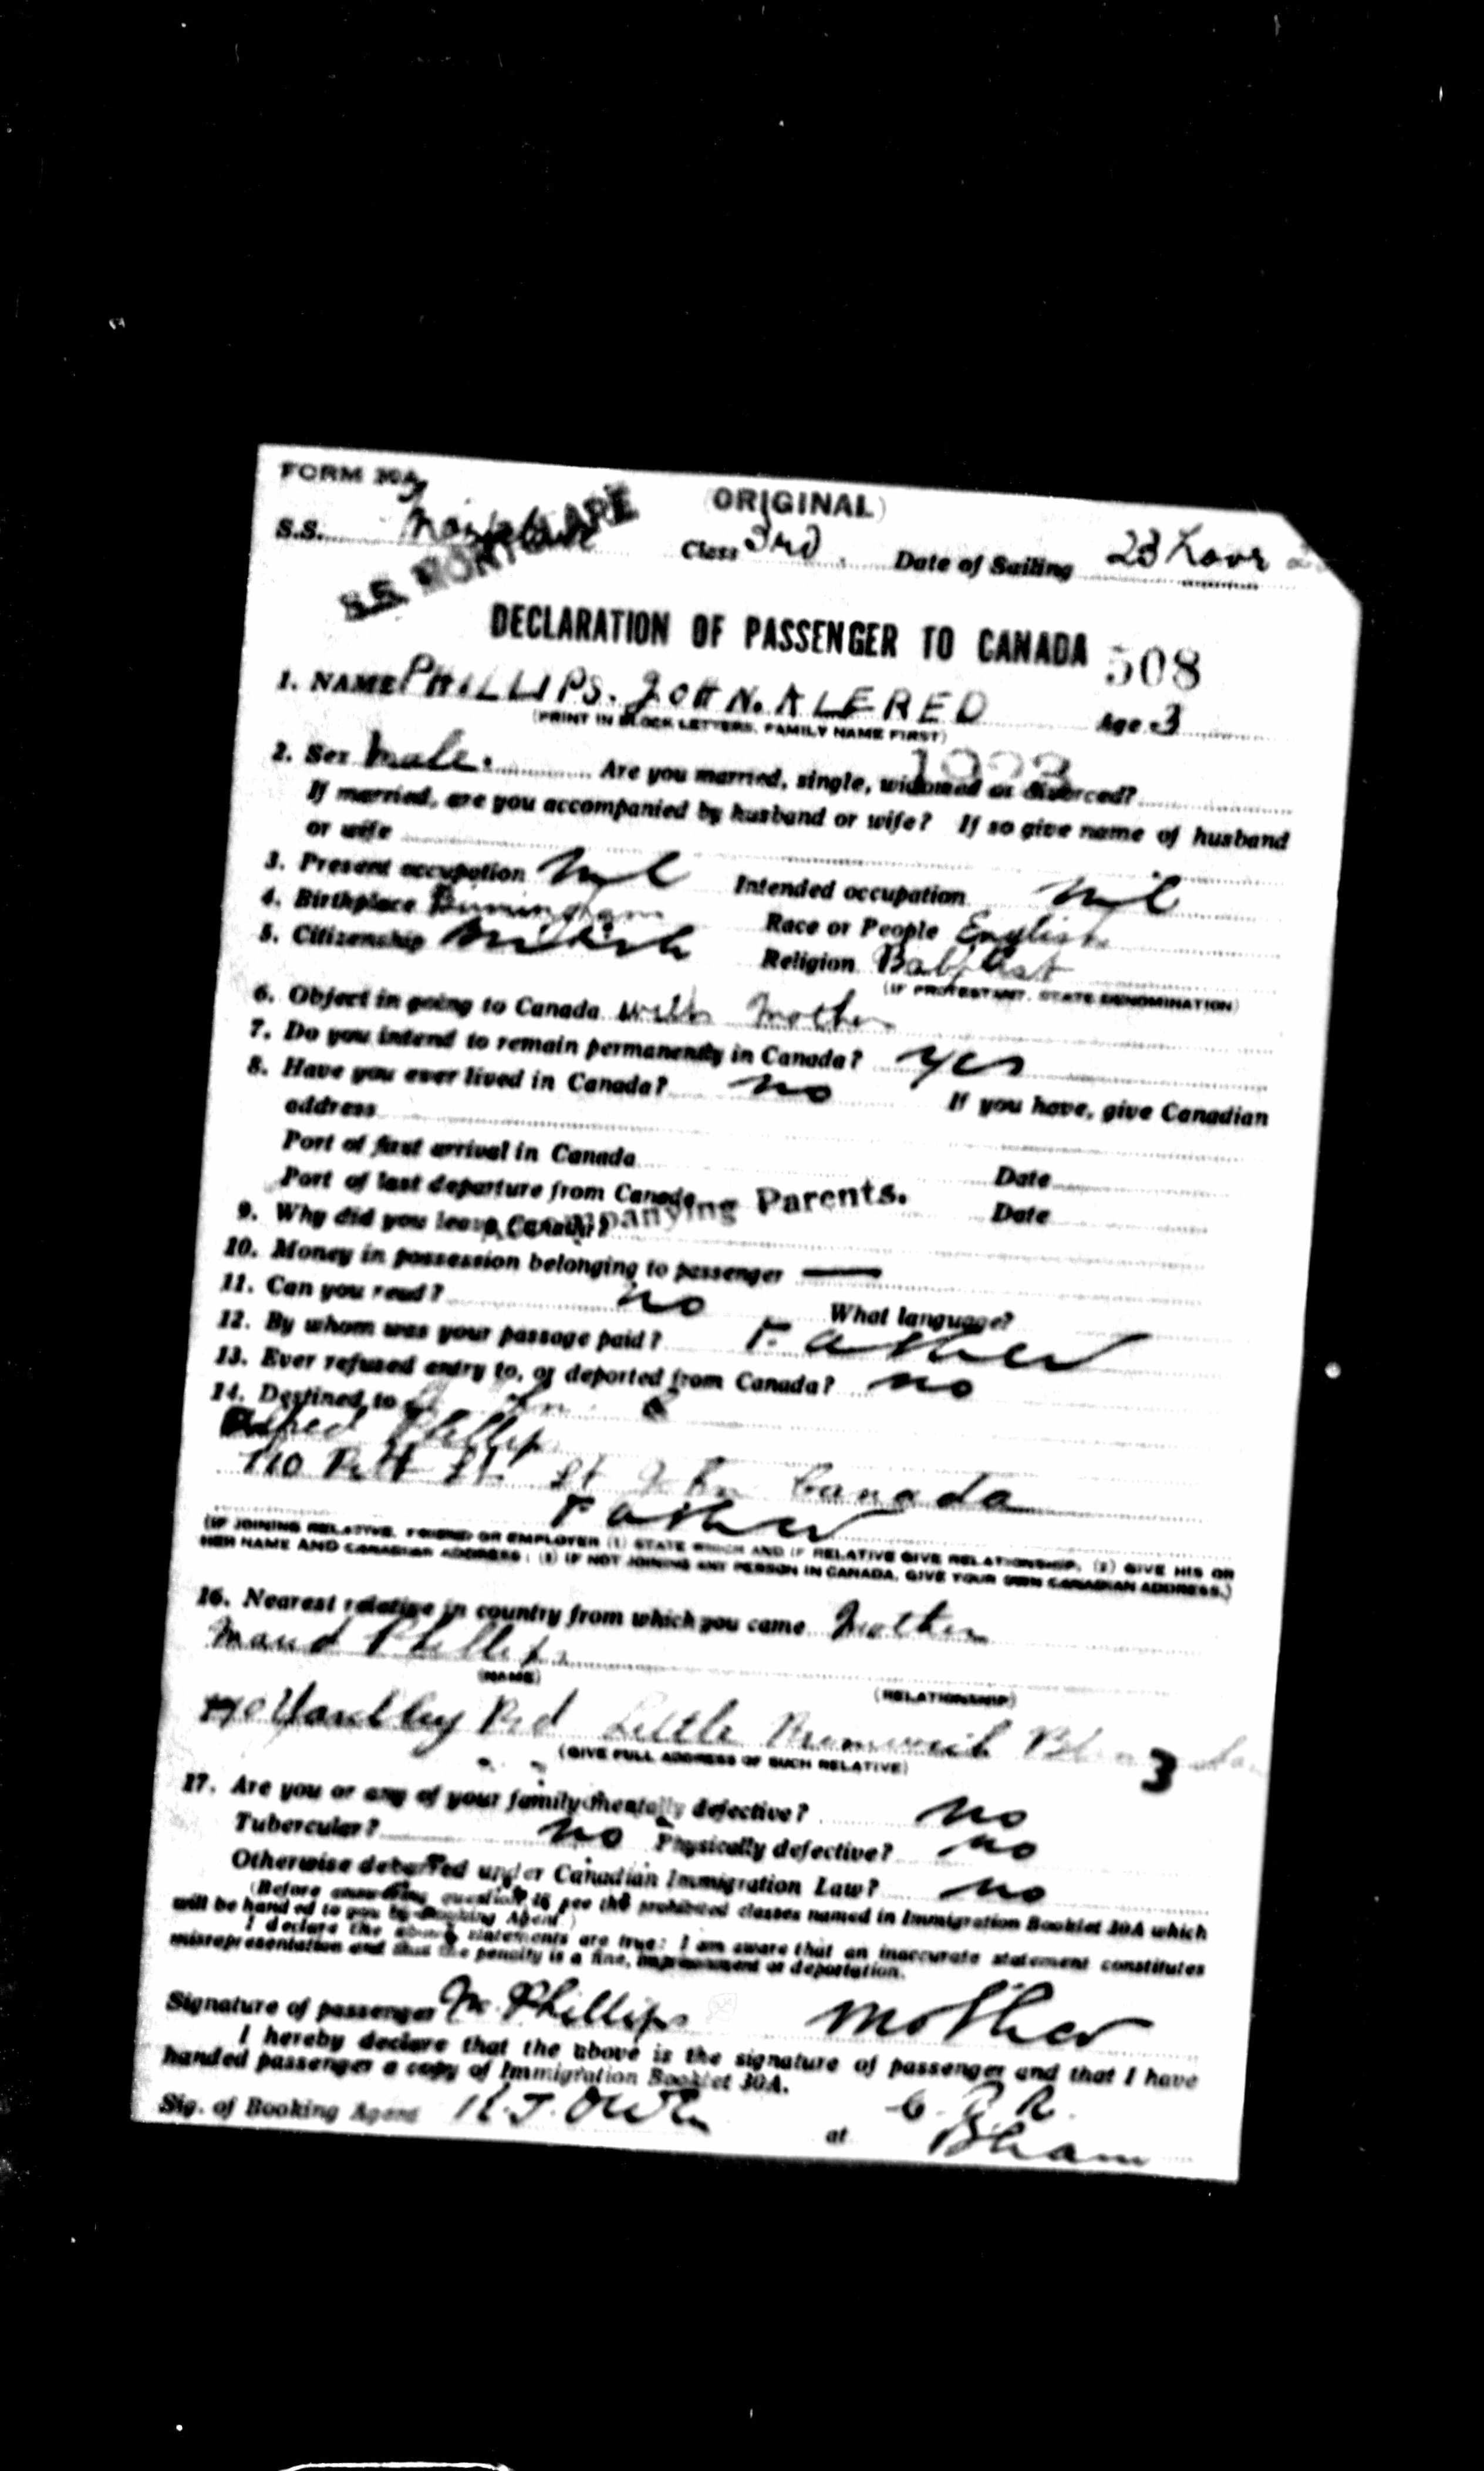 FORM 30A
ORIGINAL
S.S. Montclare Class 3rd. Date of Sailing 23
S.S. MONTCLARE
DECLARATION OF PASSENGER TO CANADA 508
1. NAME PHILLIPS. JOHN. ALERED Age 3
(PRINT IN BLOCK LETTERS, FAMILY NAME FIRST)
2. Sex Male. Are you married, single, widowed or divorced?
If married, are you accompanied by husband or wife? If so give name of husband
or wife
3. Present occupation Nil Intended occupation Nil
4. Birthplace Race or People English
5. Citizenship British Religion
(IF PROTESTANT, STATE DENOMINATION)
6. Object in going to Canada with Mother
7. Do you intend to remain permanently in Canada? Yes
8. Have you ever lived in Canada? No If you have, give Canadian
address
Port of first arrival in Canada Date
Port of last departure from Canada Date
Accompanying Parents.
9. Why did you leave Canada?
10. Money in possession belonging to passenger —
11. Can you read? No What language?
12. By whom was your passage paid? Father
13. Ever refused entry to, or deported from Canada? No
14. Destined to
Alfred Phillips
110 Pitt St. St John Canada
Father
(IF JOINING RELATIVE, FRIEND OR EMPLOYER (1) STATE WHICH AND IF RELATIVE GIVE RELATIONSHIP, (2) GIVE HIS OR
HER NAME AND CANADIAN ADDRESS; (3) IF NOT JOINING ANY PERSON IN CANADA, GIVE YOUR OWN CANADIAN ADDRESS.)
16. Nearest relative in country from which you came Mother
Maud Phillips
(NAME) (RELATIONSHIP)
Yardley Rd Little
(GIVE FULL ADDRESS OF SUCH RELATIVE) 3
17. Are you or any of your family mentally defective? No
Tubercular? No Physically defective? No
Otherwise debarred under Canadian Immigration Law? No
(Before answering question 16 see the prohibited classes named in Immigration Booklet 30A which
will be handed to you by Booking Agent.)
I declare the above statements are true: I am aware that an inaccurate statement constitutes
misrepresentation and that the penalty is a fine, imprisonment or deportation.
Signature of passenger M. Phillips Mother
I hereby declare that the above is the signature of passenger and that I have
handed passenger a copy of Immigration Booklet 30A.
Sig. of Booking Agent at C.P.R.
Bham